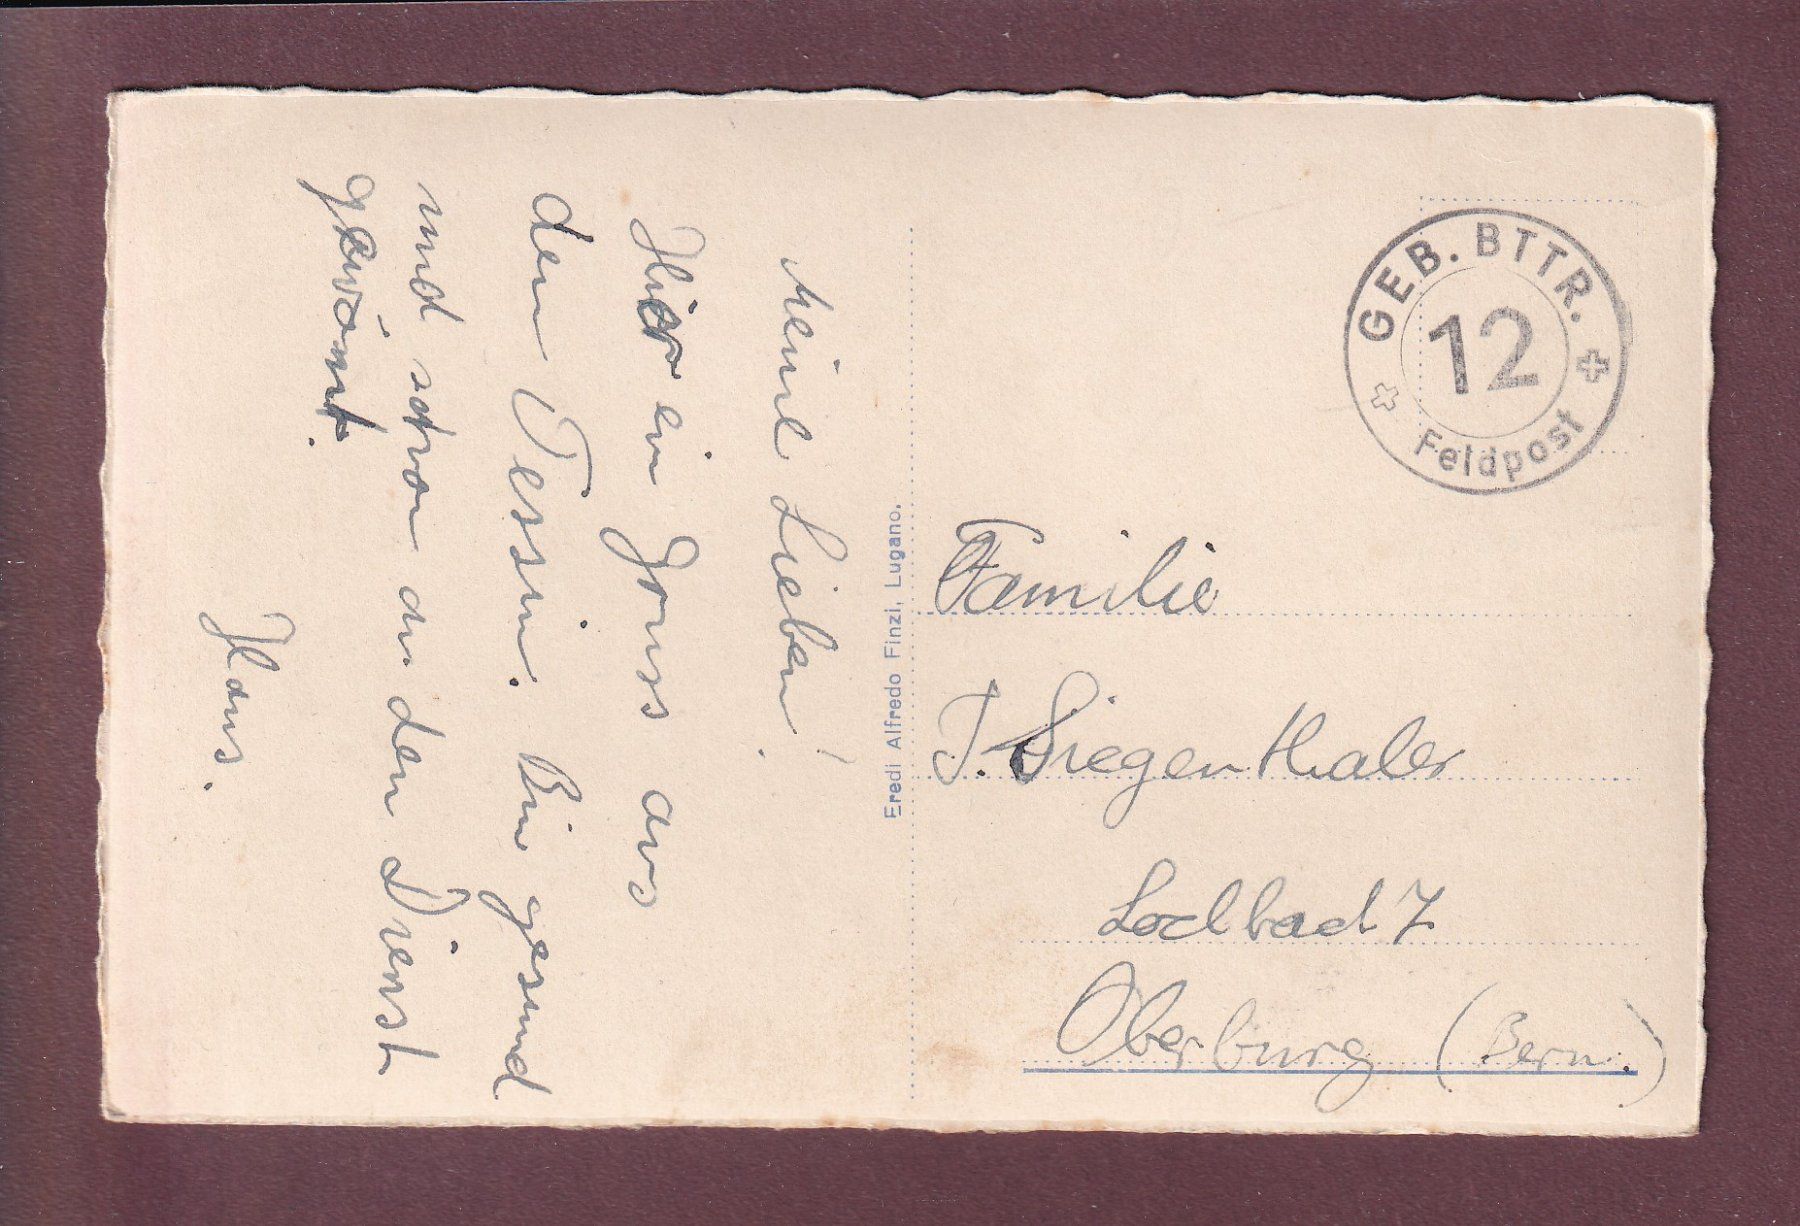 Meine Lieben!
Hier ein Gruss aus
dem Tessin. Bin gesund
und schon an den Dienst
gewöhnt.
Hans.
Eredi Alfredo Finzi, Lugano.
GEB. BTTR.
12
Feldpost
Familie
J. Siegenthaler
Lochbach 7
Oberburg (Bern.)